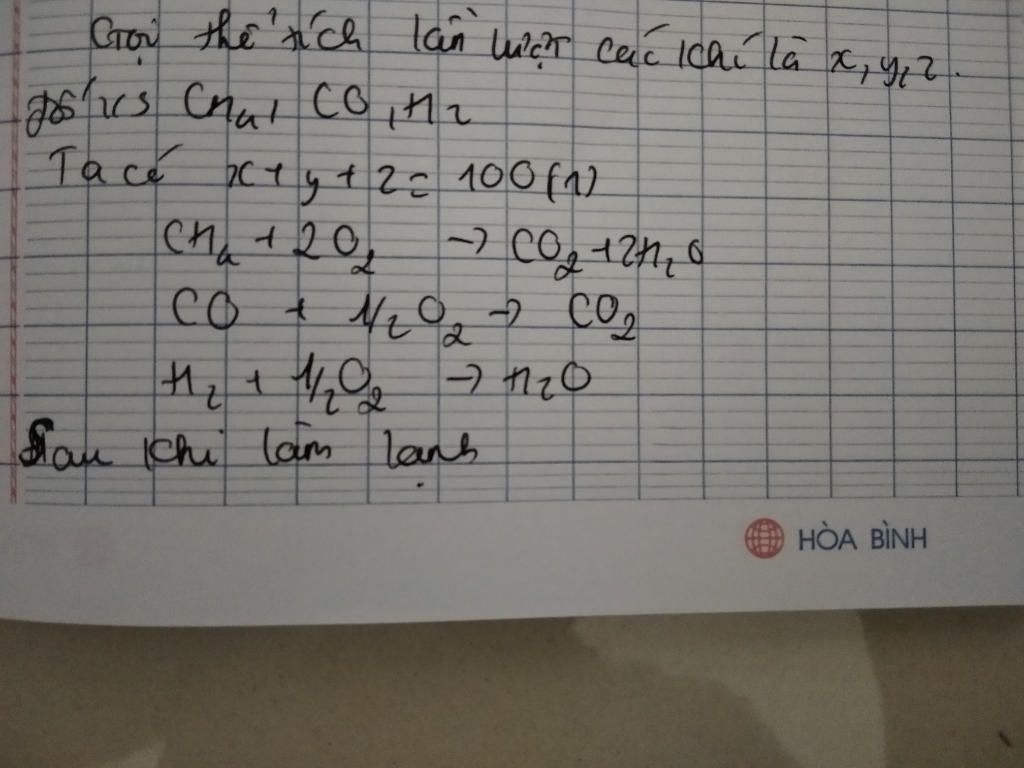 Gọi thể tích lần lượt các khí là x, y, z.
đối vs CH₄, CO, H₂
Ta có x + y + z = 100 (1)
CH₄ + 2O₂ → CO₂ + 2H₂O
CO + 1/2 O₂ → CO₂
H₂ + 1/2 O₂ → H₂O
Sau khi làm lạnh
HÒA BÌNH